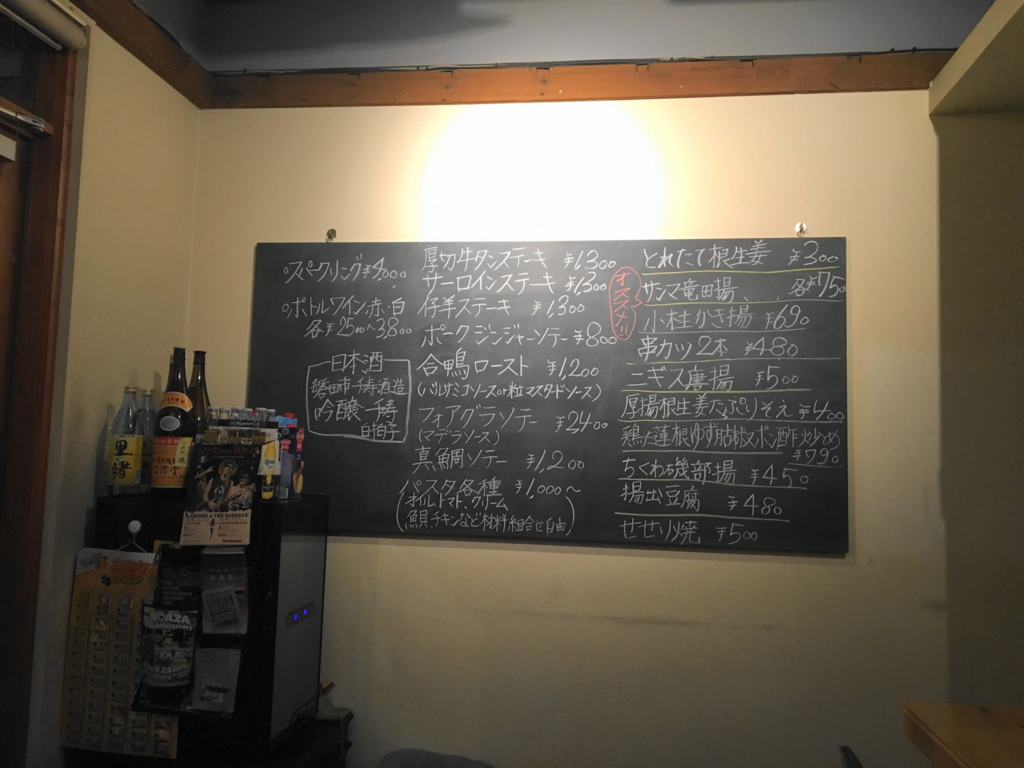 スパークリング¥4,000
ボトルワイン,赤・白
各¥2500〜3,800
日本酒
磐田市千寿酒造
吟醸 千寿
白拍子
厚切牛タンステーキ ¥1,300
サーロインステーキ ¥1,300
仔羊ステーキ ¥1,300
ポークジンジャーソテー ¥800
合鴨ロースト ¥1,200
(バルサミコソースor粒マスタードソース)
フォアグラソテー ¥2400
(マデラソース)
真鯛ソテー ¥1,200
パスタ各種 ¥1,000〜
オイル,トマト,クリーム
魚貝チキンなど材料組合せ自由
オススメ!!
とれたて根生姜 ¥300
サンマ竜田揚、、各¥750
小柱かき揚 ¥690
串カツ2本 ¥480
ニギス唐揚 ¥500
厚揚根生姜たっぷりそえ ¥400
鶏と蓮根ゆず胡椒ポン酢炒め
¥790
ちくわ磯部揚 ¥450
揚出豆腐 ¥480
せせり焼 ¥500
里の曙